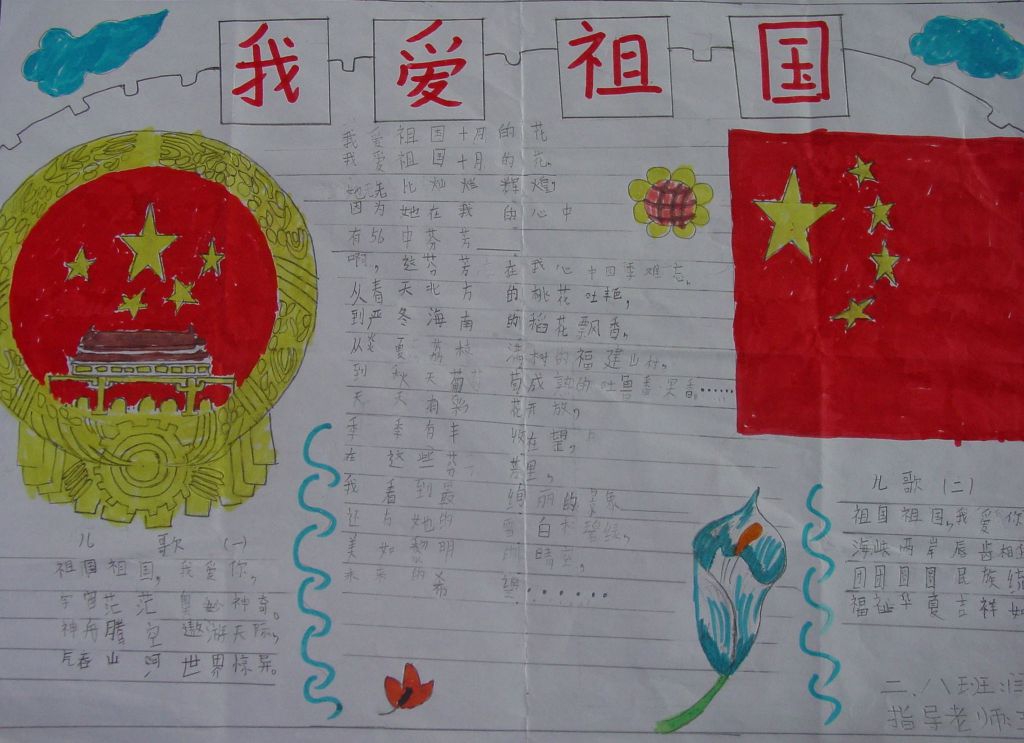 我爱祖国
我爱祖国十月的花
我爱祖国十月的花。
她比灿烂辉煌,
因为她在我的心中
有56中芬芳
啊,这芬芳在我心中四季难忘。
从春天北方的桃花吐艳,
到严冬海南的稻花飘香,
从炎夏荔枝满树的福建山村,
到秋天葡萄成熟的吐鲁番果香。......
天天有彩花开放,
季季有丰收在望,
在这些芬芳里,
我看到最绚丽的景象
还有她的雪白和碧绿,
美如黎明雨晴空,
未来的希望......
儿歌(一)
祖国祖国,我爱你,
宇宙茫茫奥妙神奇。
神舟腾空遨游天际,
气吞山河,世界惊异。
儿歌(二)
祖国祖国,我爱你
海峡两岸唇齿相
团团圆圆民族
福祉华夏吉祥如
二、八班:
指导老师: